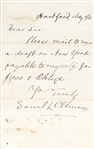 Hartford, May 12
Dear Sir:
Please mail to me
a draft on New York
payable to myself for
$900 & oblige
Yrs Truly
Saml. L. Clemens